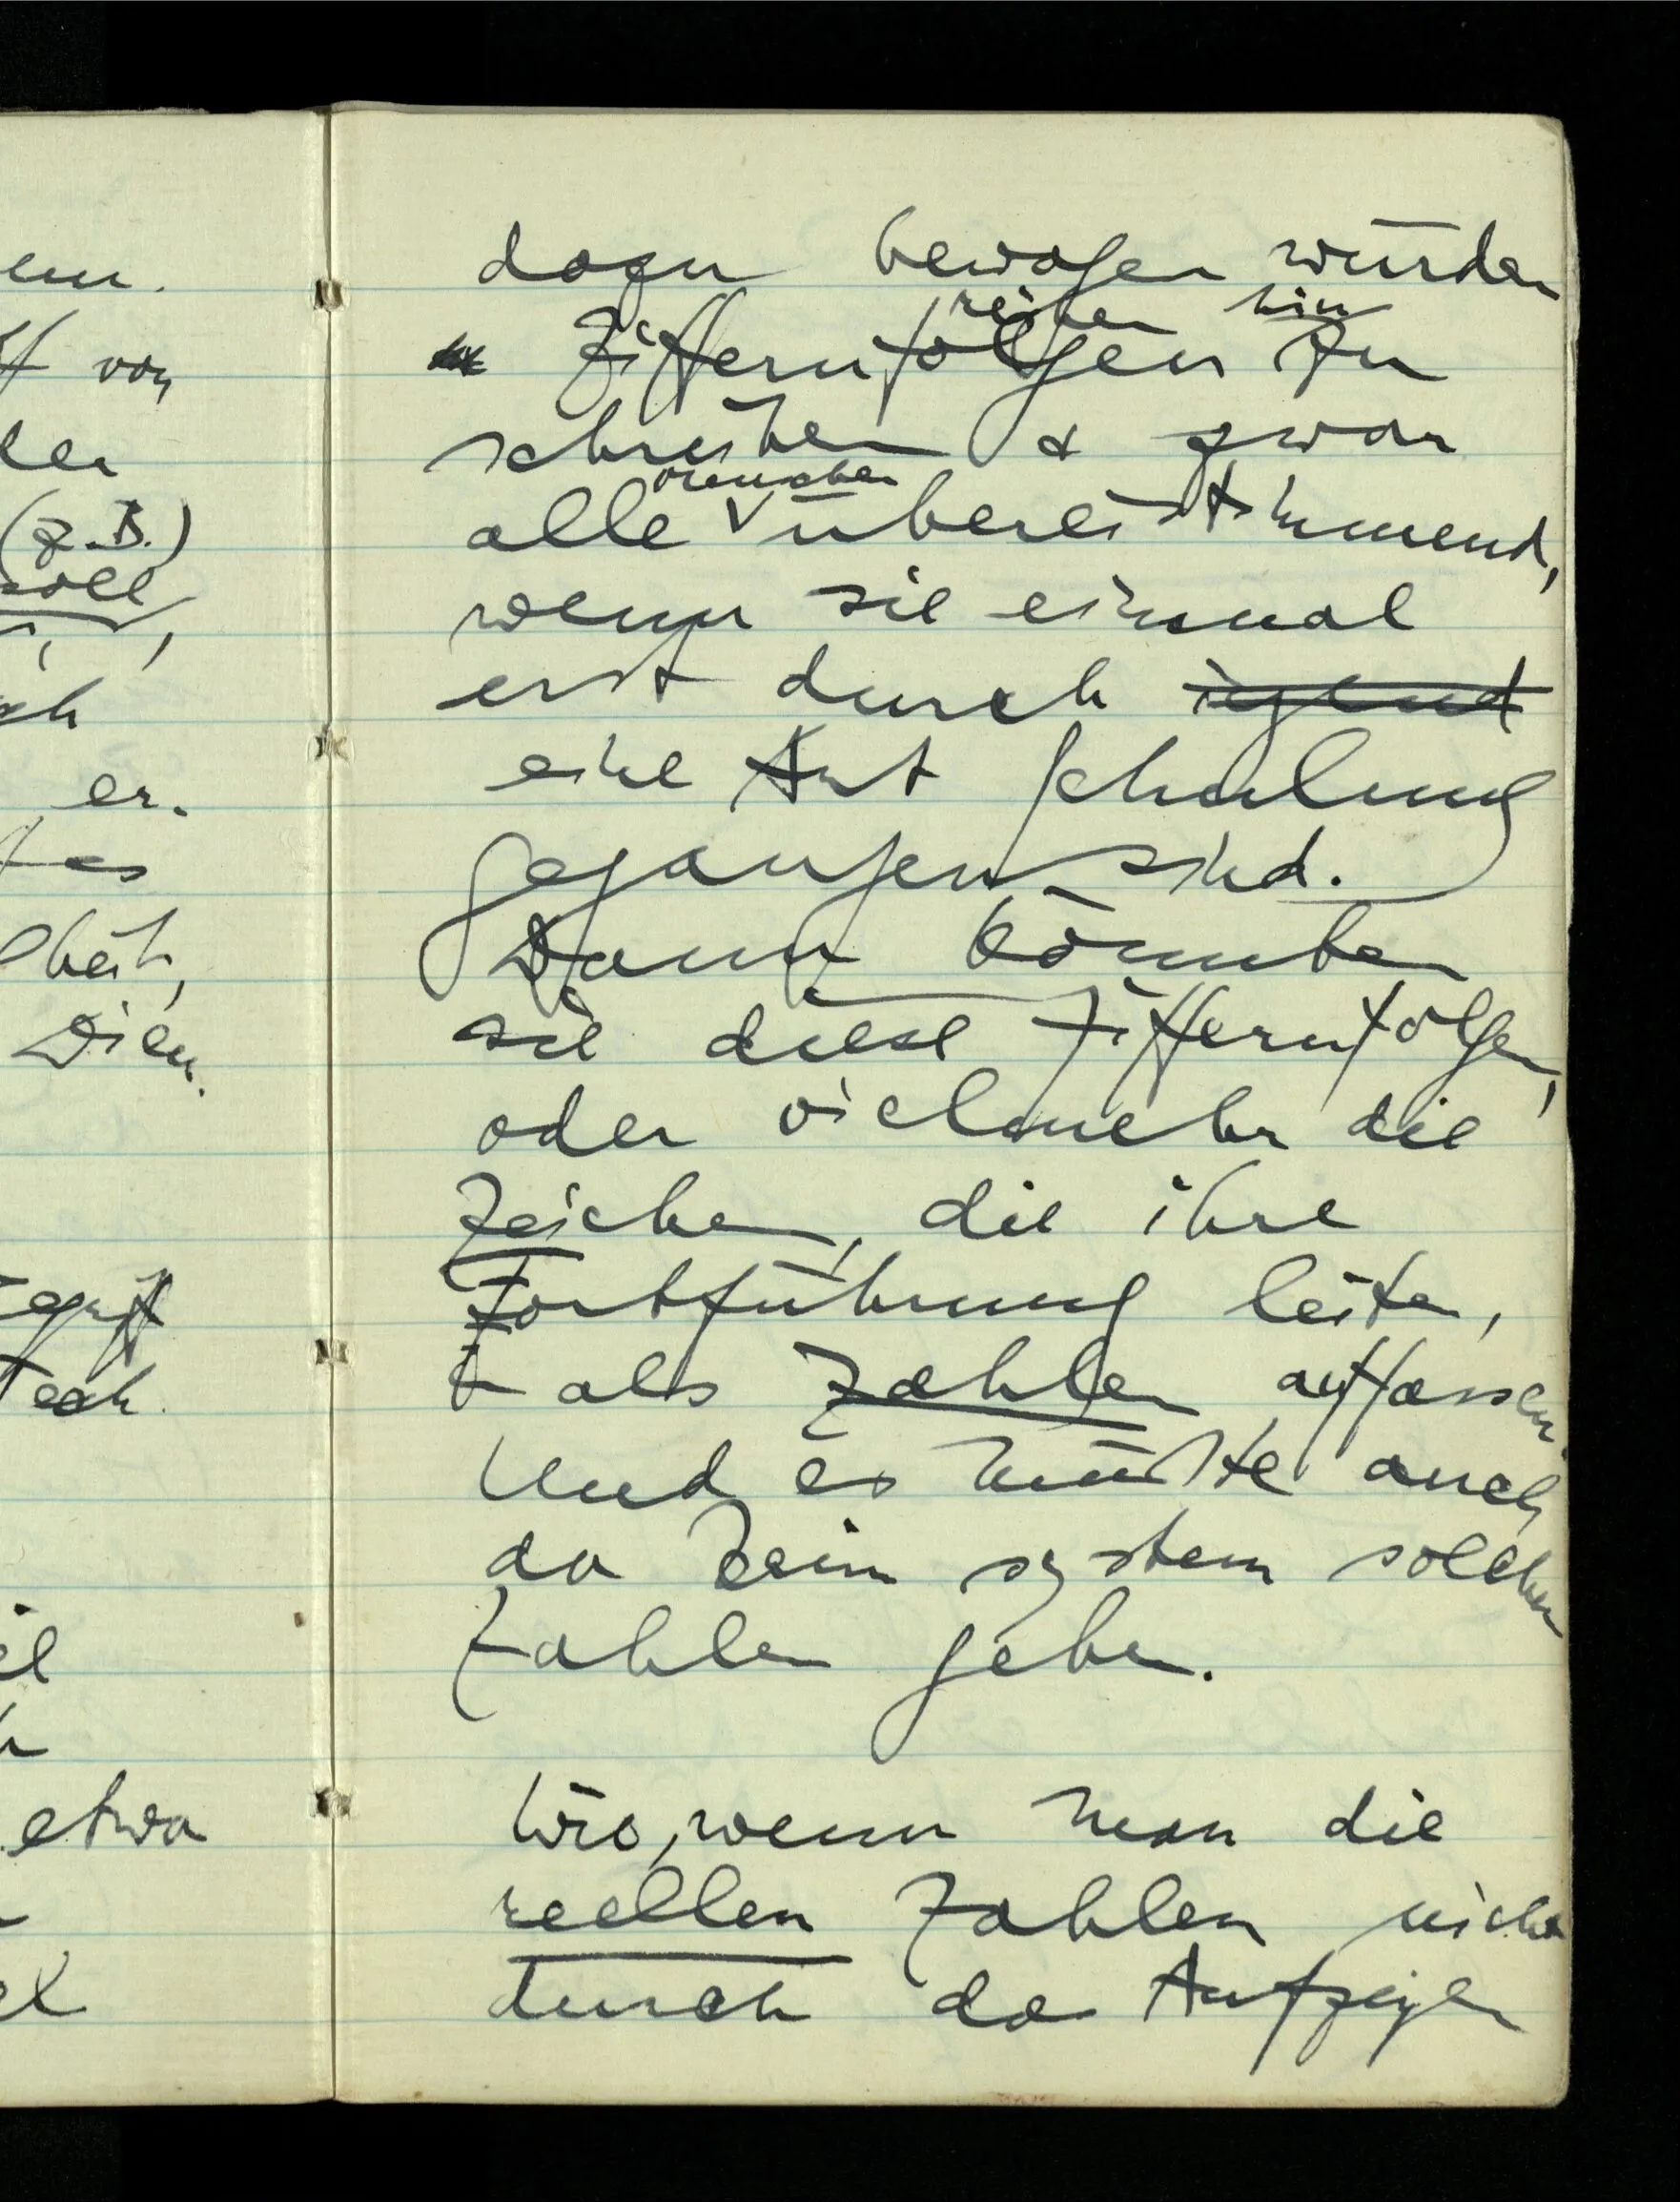 em.
von
(z.B.)
soll,
er.
es
Dien.
etwa
dazu bewogen würden
reihen hin
Ziffernfolgen zu
schreiben & zwar
Menschen
alle übereistimmend,
wenn sie einmal
erst durch irgend
eine Art Schulung
gegangen sind.
Dann könnten
sie diese Ziffernfolgen,
oder vielmehr die
Zeichen, die ihre
Fortführung leiten,
als Zahlen auffassen.
Und es müßte auch
da kein System solcher
Zahlen geben.
Wie, wenn man die
reellen Zahlen nicht
durch das Aufzeigen